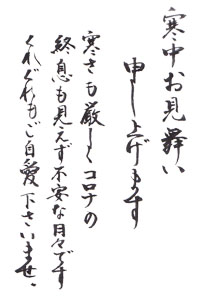 寒中お見舞い
申し上げます
寒さも厳しくコロナの
終息も見えず不安な日々です
くれぐれもご自愛下さいませ、